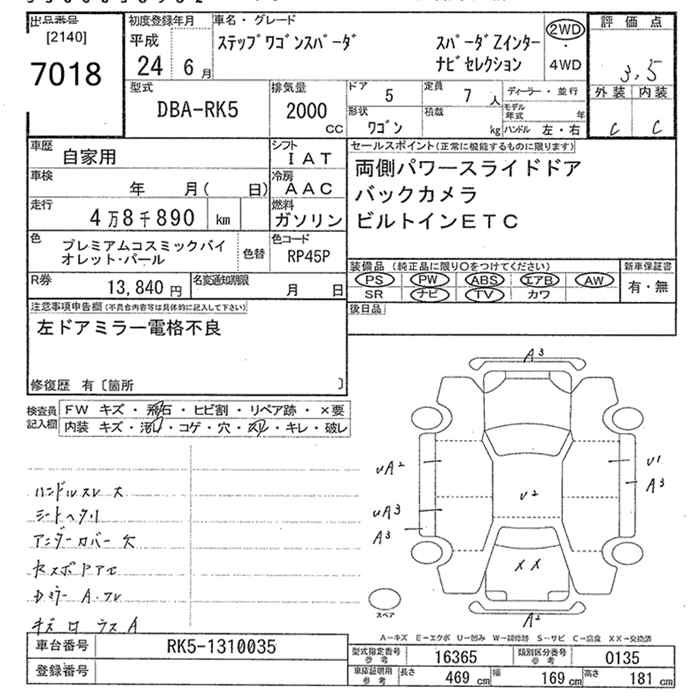 出品番号
[2140]
7018
初度登録年月
平成
24 6月
車名・グレード
ステップワゴンスパーダ
スパーダZインター
ナビセレクション
2WD
・
4WD
評価点
3.5
外装 内装
C C
型式
DBA-RK5
排気量
2000
CC
ドア 5
定員 7人
形状 ワゴン
積載 kg
ディーラー・並行
モデル年式 年
ハンドル 左・右
車歴 自家用
シフト IAT
車検 年 月( 日)
冷房 AAC
走行 4万8千890 km
燃料 ガソリン
色 プレミアムコスミックバイ
オレット・パール
色替
色コード RP45P
R券 13,840円
名変通知期限 月 日
セールスポイント(正常に機能するものに限ります)
両側パワースライドドア
バックカメラ
ビルトインETC
装備品(純正品に限り○をつけてください)
PS PW ABS エアB AW
SR ナビ TV カワ
新車保証書
有・無
後日品
注意事項申告欄(不具合内容等は具体的に記入して下さい)
左ドアミラー電格不良
修復歴 有〔箇所 〕
検査員記入欄
FW キズ・飛石・ヒビ割・リペア跡・×要
内装 キズ・汚れ・コゲ・穴・スレ・キレ・破レ
ハンドルスレ 大
シートヘタリ
アンダーカバー欠
A3
UA2
U1
A3
U2
UA3
A3
XX
スペア
A2
A―キズ E―エクボ U―凹み W―補修跡 S―サビ C―腐食 XX―交換済
車台番号 RK5-1310035
登録番号
型式指定番号 参考 16365
類別区分番号 参考 0135
車庫証明用 参考 長さ 469 cm 幅 169 cm 高さ 181 cm